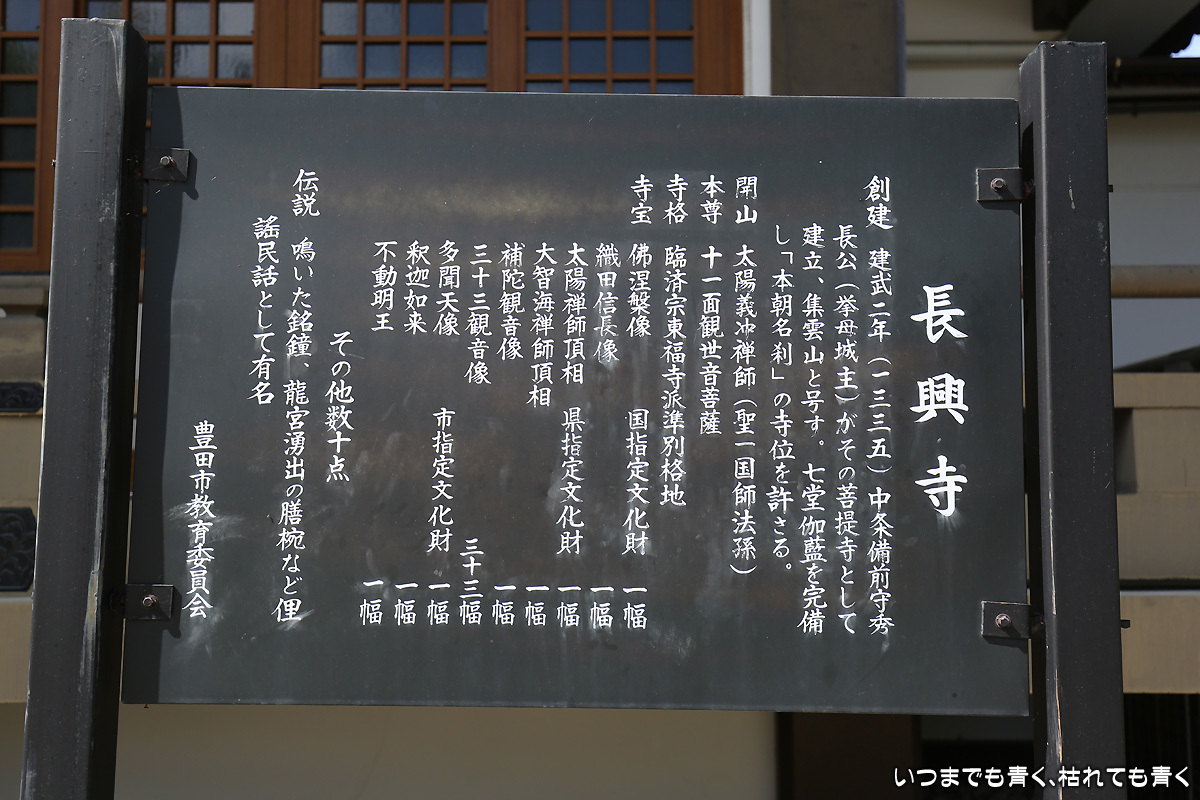 長興寺
創建 建武二年(一三三五)中条備前守秀
長公(挙母城主)がその菩提寺として
建立、集雲山と号す。七堂伽藍を完備
し「本朝名刹」の寺位を許さる。
開山 太陽義冲禅師(聖一国師法孫)
本尊 十一面観世音菩薩
寺格 臨済宗東福寺派準別格地
寺宝 佛涅槃像 国指定文化財 一幅
織田信長像 一幅
太陽禅師頂相 県指定文化財 一幅
大智海禅師頂相 一幅
補陀観音像 一幅
三十三観音像 三十三幅
多聞天像 市指定文化財 一幅
釈迦如来 一幅
不動明王 一幅
その他数十点
伝説 鳴いた銘鐘、龍宮湧出の膳椀など俚
謡民話として有名
豊田市教育委員会
いつまでも青く、枯れても青く